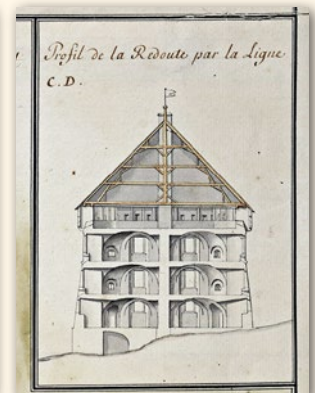 Profil de la Redoute par la Ligne
C.D.